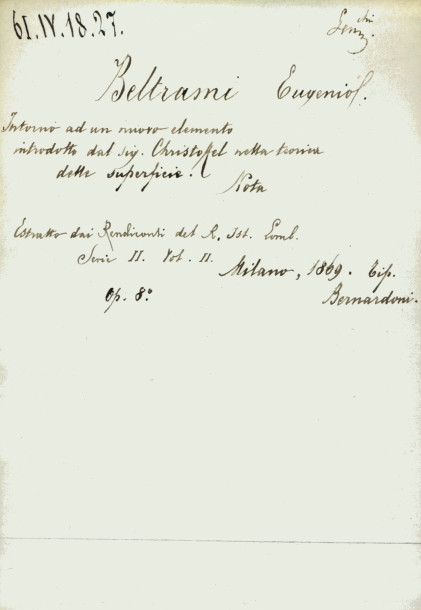 61.IV.18.27.
Beltrami Eugenio.
Intorno ad un nuovo elemento
introdotto dal sig. Christoffel nella teorica
delle superficie.
Nota
Estratto dai Rendiconti del R. Ist. Lomb.
Serie II. Vol. II.
Milano, 1869. Tip.
Op. 8.° Bernardoni.